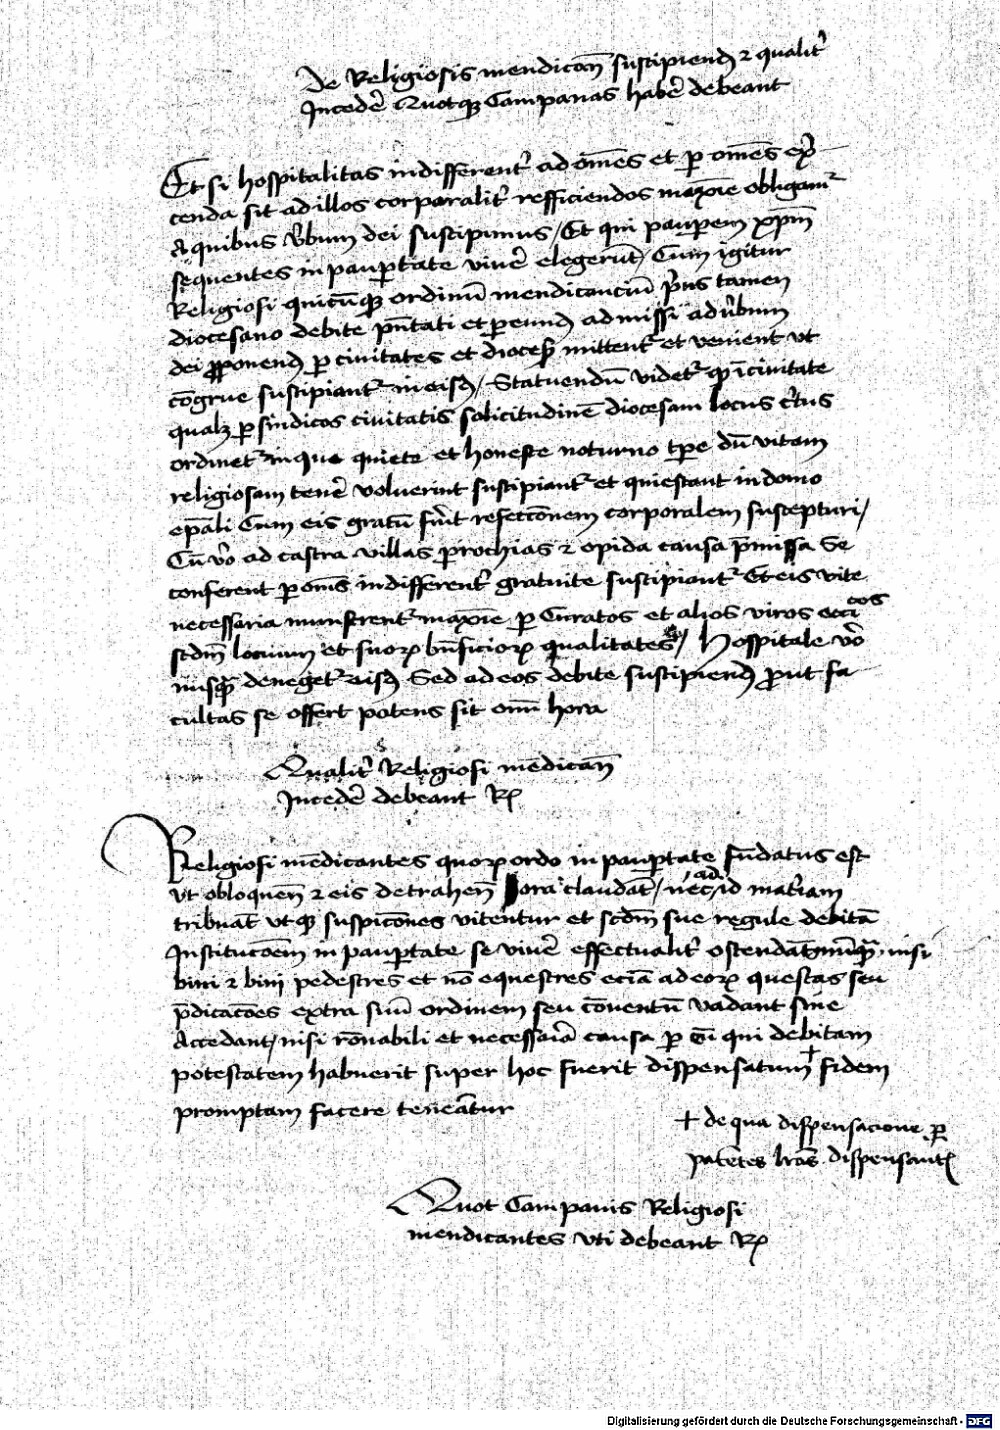 De Religiosis mendican̄ suscipiend̄ ⁊ qualit̉
Inceder̄ Quotqꝫ Campanas haber̄ debeant
Et si hospitalitas indifferent̉ ad om̄es et ꝑ om̄es exͦ
cenda sit ad illos corporalit̉ refficiendos maxīe obligamͬ
A quibus v̉bum dei suscipimus / Et qui pauperem xp̄m
sequentes in paup̉tate viuer̄ elegerūt / Cum igitur
Religiosi quicūqꝫ ordinū mendicanciū p̉us tamen
diocesano debite pn̄tati et ꝑ eund̄ admissi ad v̉bum
dei ꝓponend̄ ꝑ ciuitates et dioces̄ mittentͬ et venient vt
cōgrue suscipiantͬ in eisd̄ / Statuendū videtͬ qꝫ ī ciuitate
qualꝫ ꝑ sindicos ciuitatis solicitudinē diocesani locus c̉tus
ordinetͬ in quo quiete et honeste noturno tp̄e dū vitam
religiosam tener̄ voluerint suscipiantͬ et quiescant in domo
ep̄ali Cum eis gratū fủit refeccōnem corporalem suscepturi /
Cū v̉o ad castra villas ꝑrochias ⁊ opida causa p̄missa se
conferent ꝑ om̄s indifferent̉ gratuite suscipiantͬ Et eis vite
necessaria ministrentͬ maxīe ꝑ Curatos et alios viros ecc̄icos
scd̄m locum et suoꝝ bn̄ficioꝝ qualitates / Hospitale v̉o
nusqꝫ̄ denegetͬ eisd̄ Sed ad eos debite suscipiend̄ ꝓut fa
cultas se offert potens sit om̄i hora
Qualit̉ Religiosi mēdican̄
Inceder̄ debeant Rꝭ
Religiosi mēdicantes quoꝝ ordo in paup̉tate fūdatus est
vt obloquen̄ ⁊ eis detrahen̄ ora claudāt / nec ad id mat̉iam
tribuāt vtqꝫ suspicōnes vitentur et scd̄m sue regule debitā
Institucōem in paup̉tate se viuer̄ effectualit̉ ostendāt nūqꝫ̄ nisi
bini ⁊ bini pedestres et nō equestres eciā ad eoꝝ questas seu
p̄dicacōes extra suū ordinem seu cōuentū vadant siue
Accedant / nisi rōnabili et necessar̄ia causa ꝑ eū qui debitam
potestatem habuerit super hoc fuerit dispensatum + fidem
promptam facere teneātur
+ de qua dispensacione ꝑ
patētes lr̄as dispensantꝭ
Quot Campanis Religiosi
mendicantes vti debeant Rꝭ
Digitalisierung gefördert durch die Deutsche Forschungsgemeinschaft - DFG